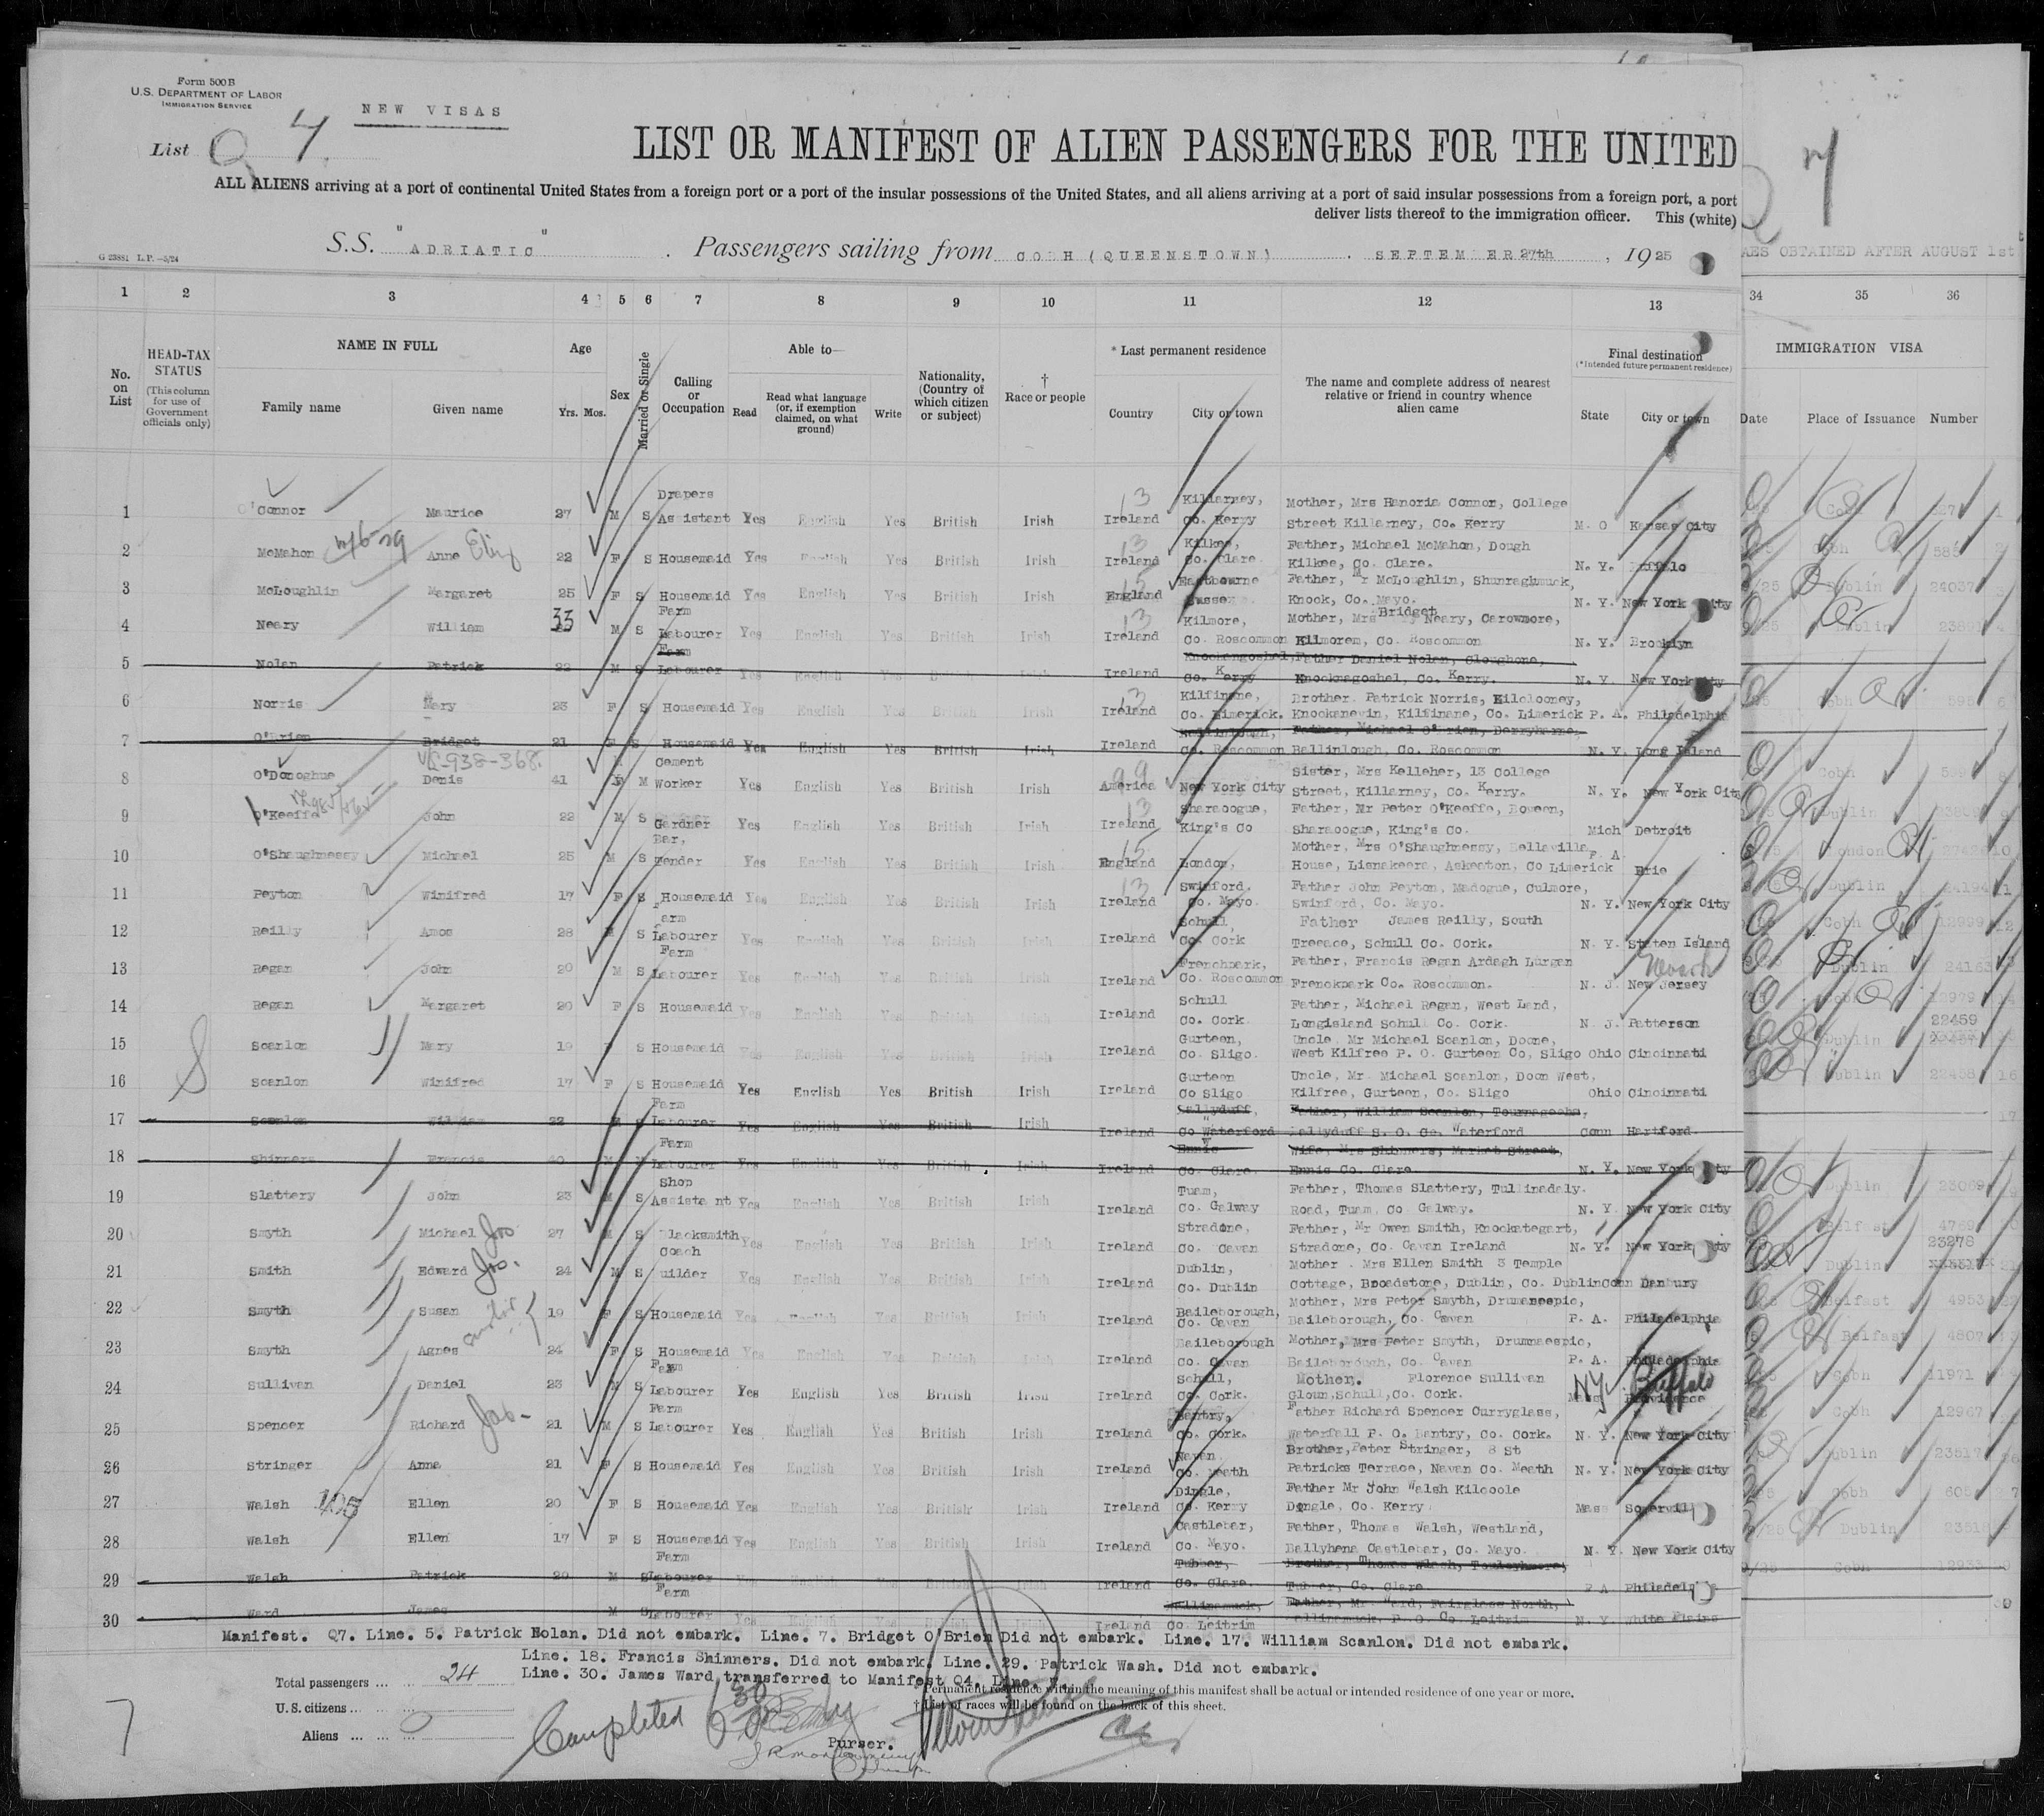 Form 500B
U.S. DEPARTMENT OF LABOR
IMMIGRATION SERVICE
NEW VISAS
List Q 7
LIST OR MANIFEST OF ALIEN PASSENGERS FOR THE UNITED
ALL ALIENS arriving at a port of continental United States from a foreign port or a port of the insular possessions of the United States, and all aliens arriving at a port of said insular possessions from a foreign port, a port
deliver lists thereof to the immigration officer. This (white)
S.S. "ADRIATIC" . Passengers sailing from COBH (QUEENSTOWN) . SEPTEMBER 27th , 1925
G 23881 L.P.—5/24
OBTAINED AFTER AUGUST 1st
1 2 3 4 5 6 7 8 9 10 11 12 13 34 35 36
No. on List
HEAD-TAX STATUS
(This column for use of Government officials only)
NAME IN FULL
Family name Given name
Age
Yrs. Mos.
Sex
Married or Single
Calling or Occupation
Able to—
Read Read what language (or, if exemption claimed, on what ground) Write
Nationality, (Country of which citizen or subject)
† Race or people
* Last permanent residence
Country City or town
The name and complete address of nearest relative or friend in country whence alien came
Final destination
(*Intended future permanent residence)
State City or town
IMMIGRATION VISA
Date Place of Issuance Number
1 O'Connor Maurice 27 M S Drapers Assistant Yes English Yes British Irish Ireland Killarney, Co. Kerry Mother, Mrs Hanoria Connor, College Street Killarney, Co. Kerry M. O Kansas City
2 McMahon Anne 22 F S Housemaid Yes English Yes British Irish Ireland Kilkee, Co. Clare Father, Michael McMahon, Dough Kilkee, Co. Clare. N. Y. Buffalo
3 McLoughlin Margaret 25 F S Housemaid Yes English Yes British Irish England Eastbourne Sussex Father, Mr McLoughlin, Shanraghmuck, Knock, Co. Mayo. N. Y. New York City Dublin 24037
4 Neary William 33 M S Farm Labourer Yes English Yes British Irish Ireland Kilmore, Co. Roscommon Mother, Mrs Bridget Neary, Carowmore, Kilmorem, Co. Roscommon N. Y. Brooklyn Dublin
5 Nolan Patrick 22 M S Farm Labourer Yes English Yes British Irish Ireland Knockangoshel, Co. Kerry Father Daniel Nolan, Cloughone, Knocknagoshel, Co. Kerry. N. Y New York City
6 Norris Mary 23 F S Housemaid Yes English Yes British Irish Ireland Kilfinane, Co. Limerick. Brother. Patrick Norris, Kilclooney, Knockanevin, Kilfinane, Co. Limerick P. A. Philadelphia Cobh 595
7 O'Brien Bridget 21 F S Housemaid Yes English Yes British Irish Ireland Ballinlough, Co. Roscommon Father, Michael O'Brien, Ballinlough, Co. Roscommon N. Y. Long Island
8 O'Donoghue Denis 41 M Cement Worker Yes English Yes British Irish America New York City Sister, Mrs Kelleher, 13 College Street, Killarney, Co. Kerry. N. Y. New York City Cobh
9 O'Keeffe John 22 M S Gardner Yes English Yes British Irish Ireland Sharaogue, King's Co Father, Mr Peter O'Keeffe, Boween, Sharaogue, King's Co. Mich Detroit Dublin
10 O'Shaughnessy Michael 25 M S Bar, Tender Yes English Yes British Irish England London, Mother, Mrs O'Shaughnessy, Bellavilla House, Lisnakeera, Askeaton, Co Limerick P. A. Erie London
11 Peyton Winifred 17 F S Housemaid Yes English Yes British Irish Ireland Swinford. Co. Mayo. Father John Peyton, Madogue, Culmore, Swinford, Co. Mayo. N. Y. New York City Dublin
12 Reilly Amos 28 M S Farm Labourer Yes English Yes British Irish Ireland Schull, Co. Cork Father James Reilly, South Treeace, Schull Co. Cork. N. Y. Staten Island Cobh 12999
13 Regan John 20 M S Farm Labourer Yes English Yes British Irish Ireland Frenchpark, Co. Roscommon Father, Francis Regan Ardagh Lurgan Frenckpark Co. Roscommon. N. J. New Jersey Newark Dublin 24163
14 Regan Margaret 20 F S Housemaid Yes English Yes British Irish Ireland Schull Co. Cork Father, Michael Regan, West Land, Longisland Schull Co. Cork. N J. Patterson Cobh 12979
15 Scanlon Mary 19 F S Housemaid Yes English Yes British Irish Ireland Gurteen, Co. Sligo. Uncle Mr Michael Scanlon, Doone, West Kilfree P. O. Gurteen Co, Sligo Ohio Cincinnati Dublin 22459
16 Scanlon Winifred 17 F S Housemaid Yes English Yes British Irish Ireland Gurteen Co Sligo Uncle, Mr Michael Scanlon, Doon West, Kilfree, Gurteen, Co. Sligo Ohio Cincinnati Dublin 22458
17 Scanlon William 22 M S Farm Labourer Yes English Yes British Irish Ireland Ballyduff, Co Waterford Father, William Scanlon, Ballyduff S. O. Co. Waterford Conn Hartford
18 Shinners Francis 40 M M Farm Labourer Yes English Yes British Irish Ireland Ennis Co. Clare. Wife, Mrs Shinners, Market Street, Ennis Co. Clare N. Y. New York City
19 Slattery John 23 M S Shop Assistant Yes English Yes British Irish Ireland Tuam, Co. Galway Father, Thomas Slattery, Tullinadaly. Road, Tuam, Co Galway. N. Y New York City Dublin 23069
20 Smyth Michael 27 M S Blacksmith Yes English Yes British Irish Ireland Stradone, Co. Cavan Father, Mr Owen Smith, Knockategart, Stradone, Co. Cavan Ireland N. Y. New York City Belfast
21 Smith Edward 24 M S Coach Builder Yes English Yes British Irish Ireland Dublin, Co. Dublin Mother . Mrs Ellen Smith 3 Temple Cottage, Broadstone, Dublin, Co. Dublin Conn Danbury Dublin 23278
22 Smyth Susan 19 F S Housemaid Yes English Yes British Irish Ireland Baileborough, Co. Cavan Mother, Mrs Peter Smyth, Drumanespic, Baileborough, Co. Cavan P. A. Philadelphia Belfast 4953
23 Smyth Agnes 24 F S Housemaid Yes English Yes British Irish Ireland Baileborough Co. Cavan Mother, Mrs Peter Smyth, Drumnaespic, Baileborough, Co. Cavan P. A. Philadelphia Belfast
24 Sullivan Daniel 23 M S Farm Labourer Yes English Yes British Irish Ireland Schull, Co. Cork. Mother. Florence Sullivan Gloun, Schull, Co. Cork. Mass Providence NY. Buffalo Cobh 11971
25 Spencer Richard 21 M S Farm Labourer Yes English Yes British Irish Ireland Bantry, Co. Cork. Father Richard Spencer Curryglass, Waterfall P. O. Bantry, Co. Cork. N. Y. New York City Cobh 12967
26 Stringer Anna 21 F S Housemaid Yes English Yes British Irish Ireland Navan Co. Meath Brother, Peter Stringer, 8 St Patricks Terrace, Navan Co. Meath N. Y. New York City Dublin 23517
27 Walsh Ellen 20 F S Housemaid Yes English Yes British Irish Ireland Dingle, Co. Kerry Father Mr John Walsh Kilcoole Dingle, Co. Kerry. Mass Somerville Cobh 605
28 Walsh Ellen 17 F S Housemaid Yes English Yes British Irish Ireland Castlebar, Co. Mayo. Father, Thomas Walsh, Westland, Ballyhena Castlebar, Co. Mayo. N. Y. New York City Dublin 23518
29 Walsh Patrick 29 M S Farm Labourer Yes English Yes British Irish Ireland Tubber, Co. Clare. Brother, Thomas Walsh, Tubber, Co. Clare P A Philadelphia Cobh 12933
30 Ward James M S Farm Labourer Yes English Yes British Irish Ireland Ballinamuck, Co Leitrim Father, Mr Ward, Fairglass North, Ballinamuck, P. O. Co. Leitrim N. Y. White Plains
Manifest. Q7. Line. 5. Patrick Nolan. Did not embark. Line. 7. Bridget O'Brien Did not embark. Line. 17. William Scanlon. Did not embark.
Line. 18. Francis Shinners. Did not embark. Line. 29. Patrick Wash. Did not embark.
Line. 30. James Ward transferred to Manifest Q4. Line.
Total passengers ... 24
U.S. citizens
Aliens
* Permanent residence within the meaning of this manifest shall be actual or intended residence of one year or more.
† List of races will be found on the back of this sheet.
Completed
Purser.
7